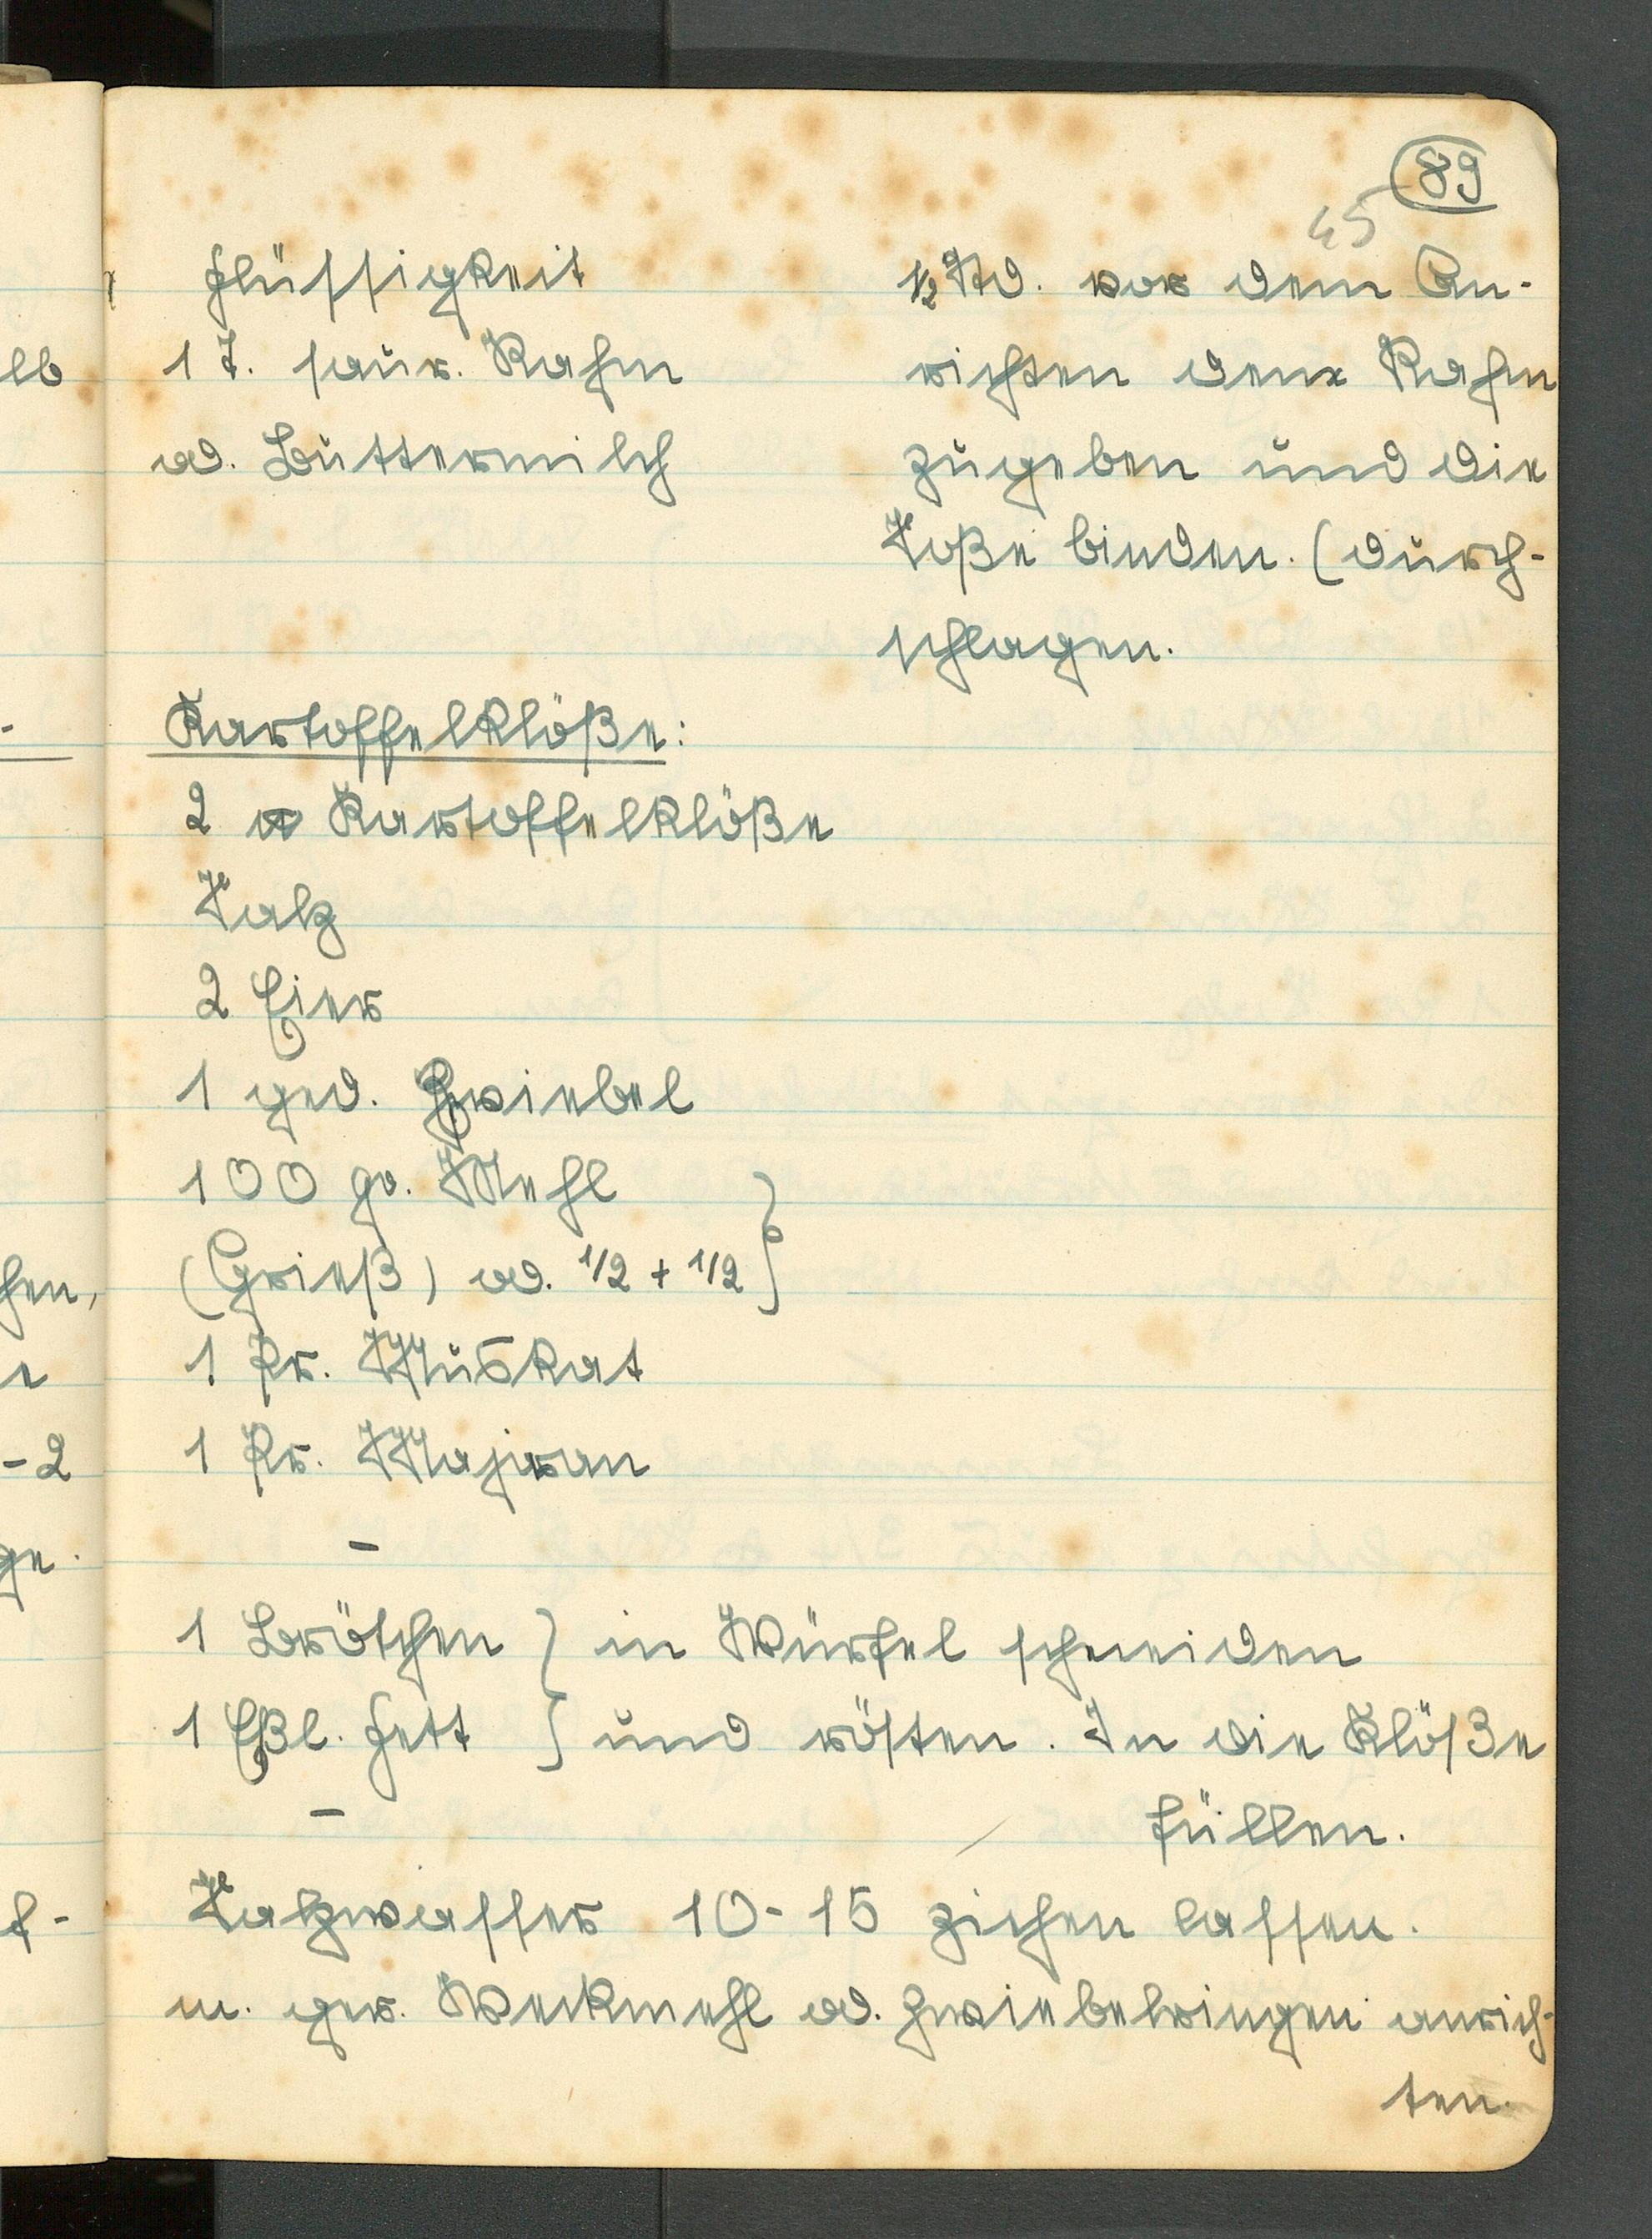 89
45
Flüssigkeit
1 T. saur. Rahm
od. Buttermilch
1/2 Std. vor dem An-
richten den Rahm
zugeben und die
Soße binden. (durch-
schlagen.
Kartoffelklöße:
2 Kartoffelklöße
Salz
2 Eier
1 ged. Zwiebel
100 gr. Mehl
(Grieß) od. 1/2 + 1/2 }
1 Pr. Muskat
1 Pr. Majoran
-
1 Brötchen } in Würfel schneiden
1 Eßl. Fett } und rösten. In die Klöße
- füllen.
Salzwasser 10-15 ziehen lassen.
m. ger. Weckmehl od. Zwiebelringen anrich-
ten.
lb
-
hen,
e
-2
ge.
f-